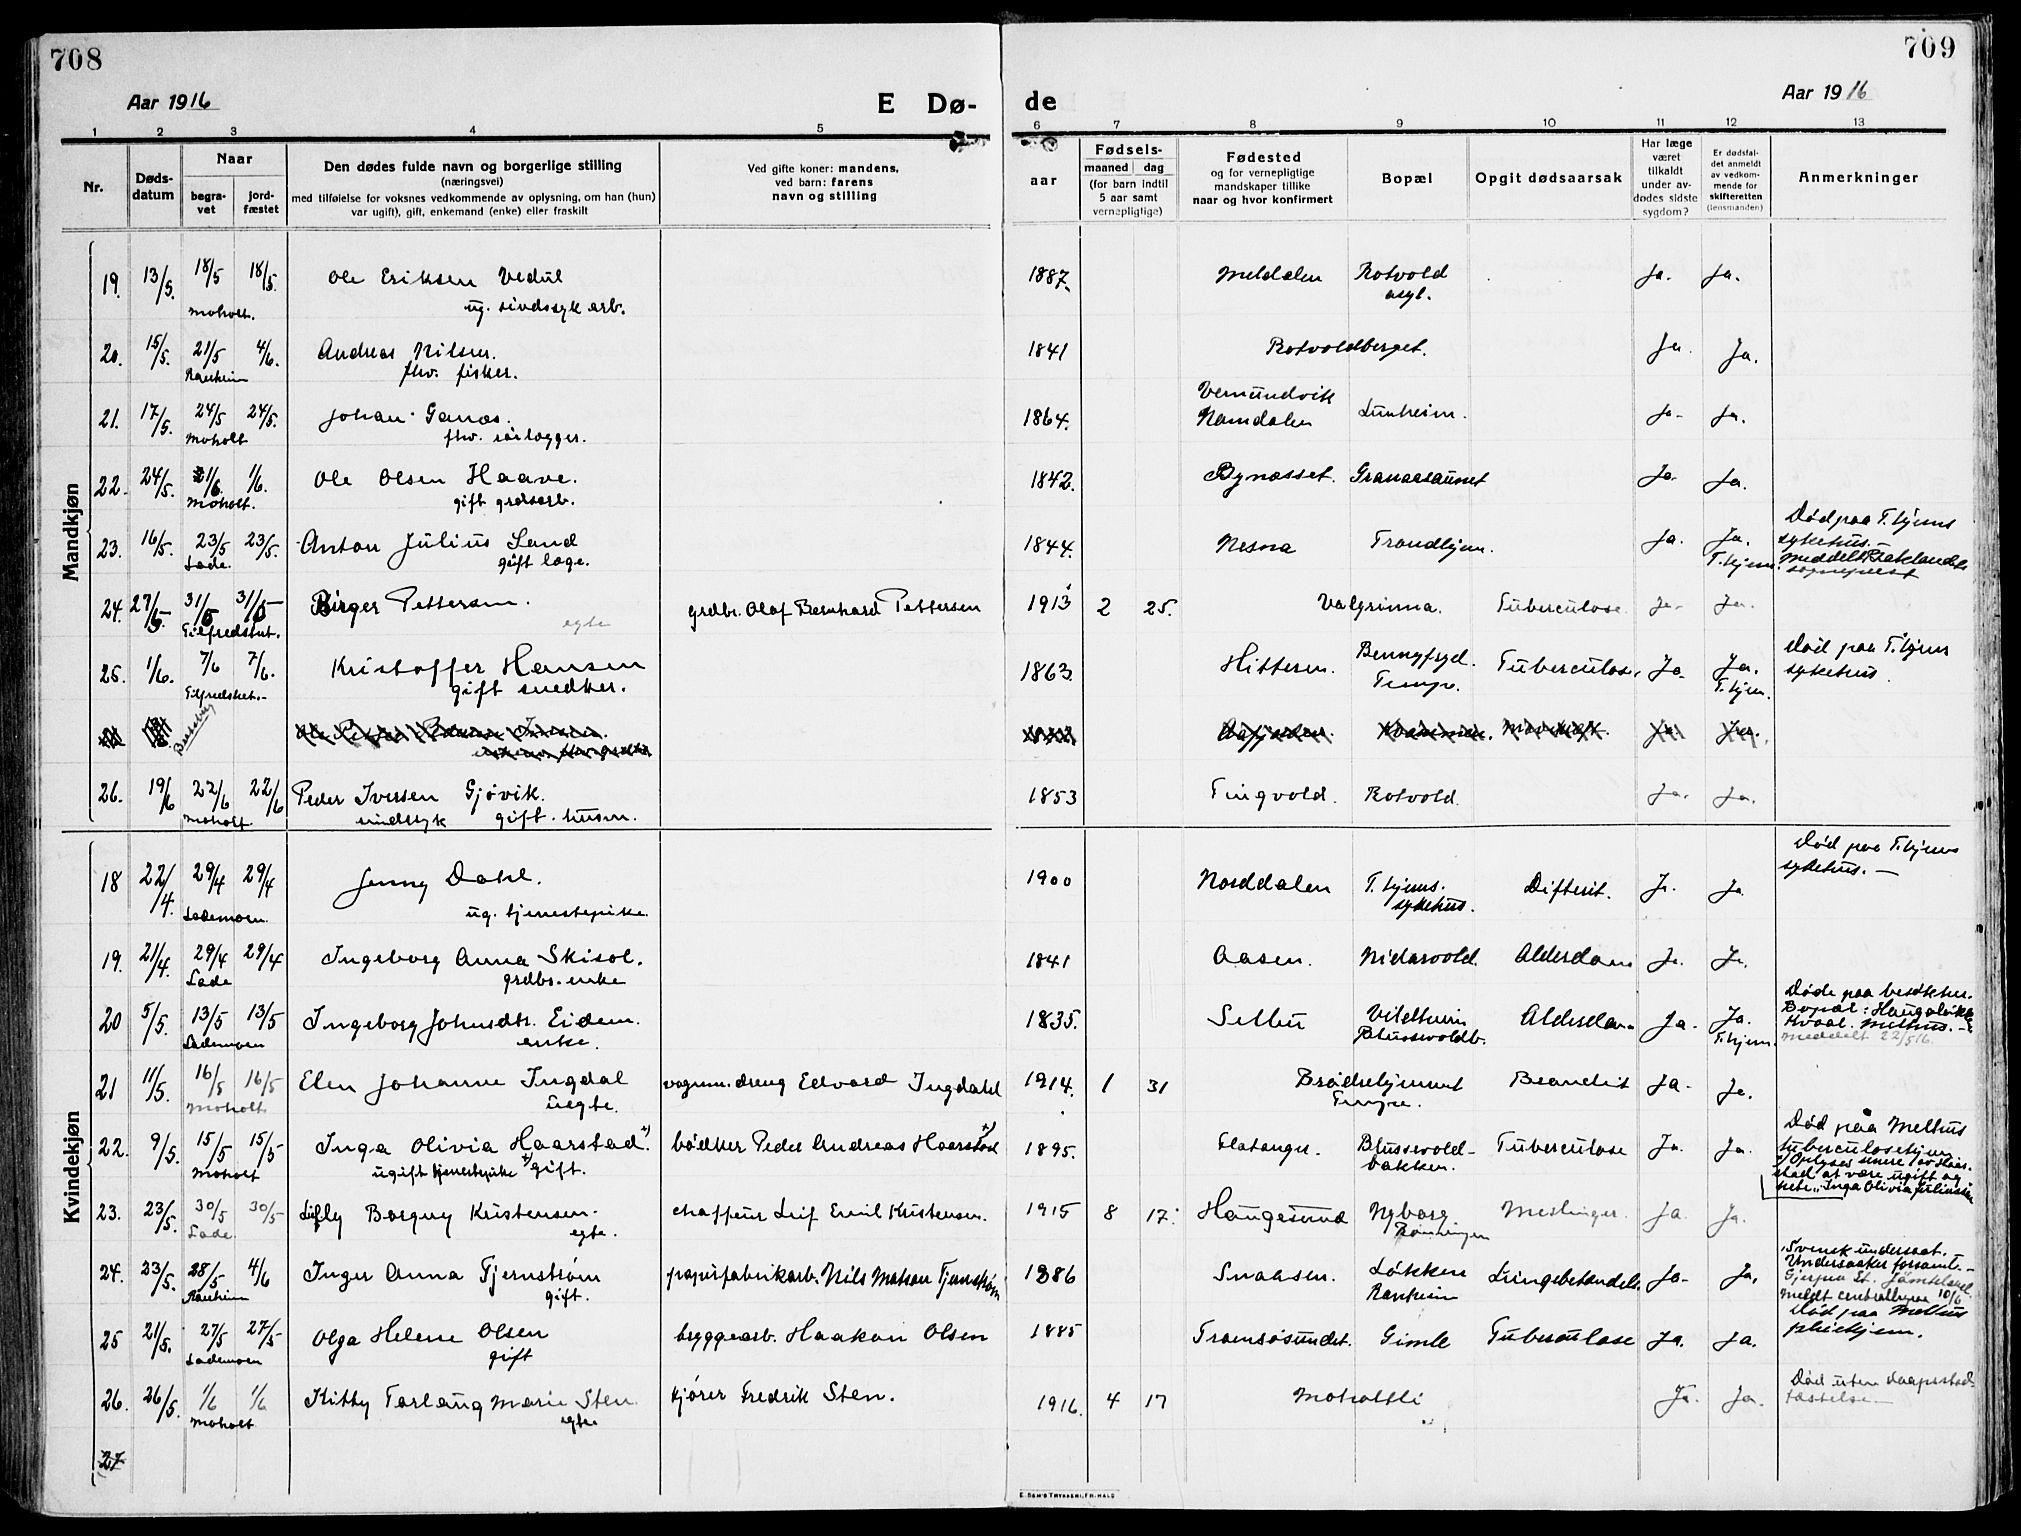 708
709
Aar 1916
E Dø-
de
Aar 1916
1 2 3 4 5 6 7 8 9 10 11 12 13
Nr.
Døds-
datum
Naar
begra-
vet
jord-
fæstet
Den dødes fulde navn og borgerlige stilling
(næringsvei)
med tilføielse for voksnes vedkommende av oplysning, om han (hun)
var ugift), gift, enkemand (enke) eller fraskilt
Ved gifte koner: mandens,
ved barn: farens
navn og stilling
aar
Fødsels-
maaned dag
(for barn indtil
5 aar samt
vernepligtige)
Fødested
og for vernepligtige
mandskaper tillike
naar og hvor konfirmert
Bopæl
Opgit dødsaarsak
Har læge
været
tilkaldt
under av-
dødes sidste
sygdom?
Er dødsfal-
det anmeldt
av vedkom-
mende for
skifteretten
(lensmanden)
Anmerkninger
Mandkjøn
19. 13/5. 18/5 18/5. Ole Eriksen Vedul 1887. Meldalen Rotvold Ja. Ja.
Moholt. ug. sindssyk arb. asyl.
20. 15/5. 21/5 4/6. Andreas Nilsen. 1841 Rotvoldberget. Ja. Ja.
Ranheim fhv. fisker.
21. 17/5. 24/5 24/5. Johan Ganæs. 1864. Vemundvik Namdalen Ja. Ja.
Moholt fhv.
22. 24/5. 1/6. 1/6. Ole Olsen Haave. 1842. Bynæsset. Ja. Ja.
Moholt. gift grdsarb.
23. 16/5. 23/5 23/5. Anton Julius Sand 1844. Nesna Trondhjem. Ja. Ja. T.hjem. Død paa T.hjems
Lade. gift læge. sykehus.
24. 27/5. 31/5 31/5 Birger Pettersen. grdbr. Olaf Bernhard Pettersen 1913 2 25. Valgrinna. Tuberculose. Ja. Ja.
Tilfredshet. egte
25. 1/6. 7/6 7/6. Kristoffer Hansen 1863. Hitteren. Tempe. Tuberculose. Ja. Ja. T.hjem. Død paa T.hjem
Tilfredshet. gift snedker. sykehus.
26. 19/6 22/6 22/6 Peder Iversen Gjøvik. 1853 Tingvold. Rotvold. Ja. Ja.
Moholt. sindssyk gift. husm.
Kvindekjøn
18 22/4. 29/4 29/4 Jenny Dahl. 1900 Norddalen T.hjems. Difterit. Ja. Ja Død paa T.hjems
Lademoen. ug. tjenestepike. sykehus. sykehus.
19. 21/4. 29/4 29/4 Ingeborg Anna Skisol. 1841 Aasen. Nidarvold. Alderdom Ja. Ja.
Lade grdbr. enke
20 5/5. 13/5 13/5 Ingeborg Johnsdtr. Eidem. 1835. Selbu Alderdom Ja. Ja. T.hjem. Døde paa besøk her.
Lademoen enke. Bopæl: Haugaløkke
Kvaal. Melhus.
Meddelt 22/5 16.
21 11/5. 16/5 16/5 Elen Johanne Ingdal vognm. dreng Edvard Ingdahl 1914. 1 31 Brødrehjemmet Ja. Ja.
Moholt uegte. Tempe.
22. 9/5. 15/5 15/5 Inga Olivia Haarstad. bødker Peder Andreas Haarstad 1895. Flatanger. Blussuvold- Tuberculose Ja. Ja. Død paa Melhus
Moholt ugift tjenestepike gift. bakken. tuberculosehjem
Oplyses senere av Haar-
stad at være ugift og
hete "Inga Olivia Julinsen
23. 23/5. 30/5 30/5 Lifly Borgny Kristensen. chaffeur Leif Emil Kristensen. 1915 8 17. Haugesund Nyborg Meslinger. Ja. Ja.
Lade. egte.
24. 23/5. 28/5 4/6 Inger Anna Tjernstrøm papirfabrikarb. Nils Matson Tjernstrøm 1886 Snaasen. Løkken Lungebetændelse Ja. Ja. Svensk undersaat.
Ranheim gift. Ranheim Undersaaker forsaml.
25 21/5. 27/5 27/5 Olga Helene Olsen byggearb. Haakon Olsen 1885 Tromsøsundet. Gimle Tuberculose Ja. Ja. Død paa Melhus
Lademoen gift pleiehjem.
26. 26/5. 1/6 1/6 Kitty Torlaug Marie Sten kjører Fredrik Sten. 1916. 4 17 Moholtli Ja. Ja. Død uten daapsstad-
Moholt egte fæstelse.
27
E. SEM'S TRYKKERI, FR.HALD